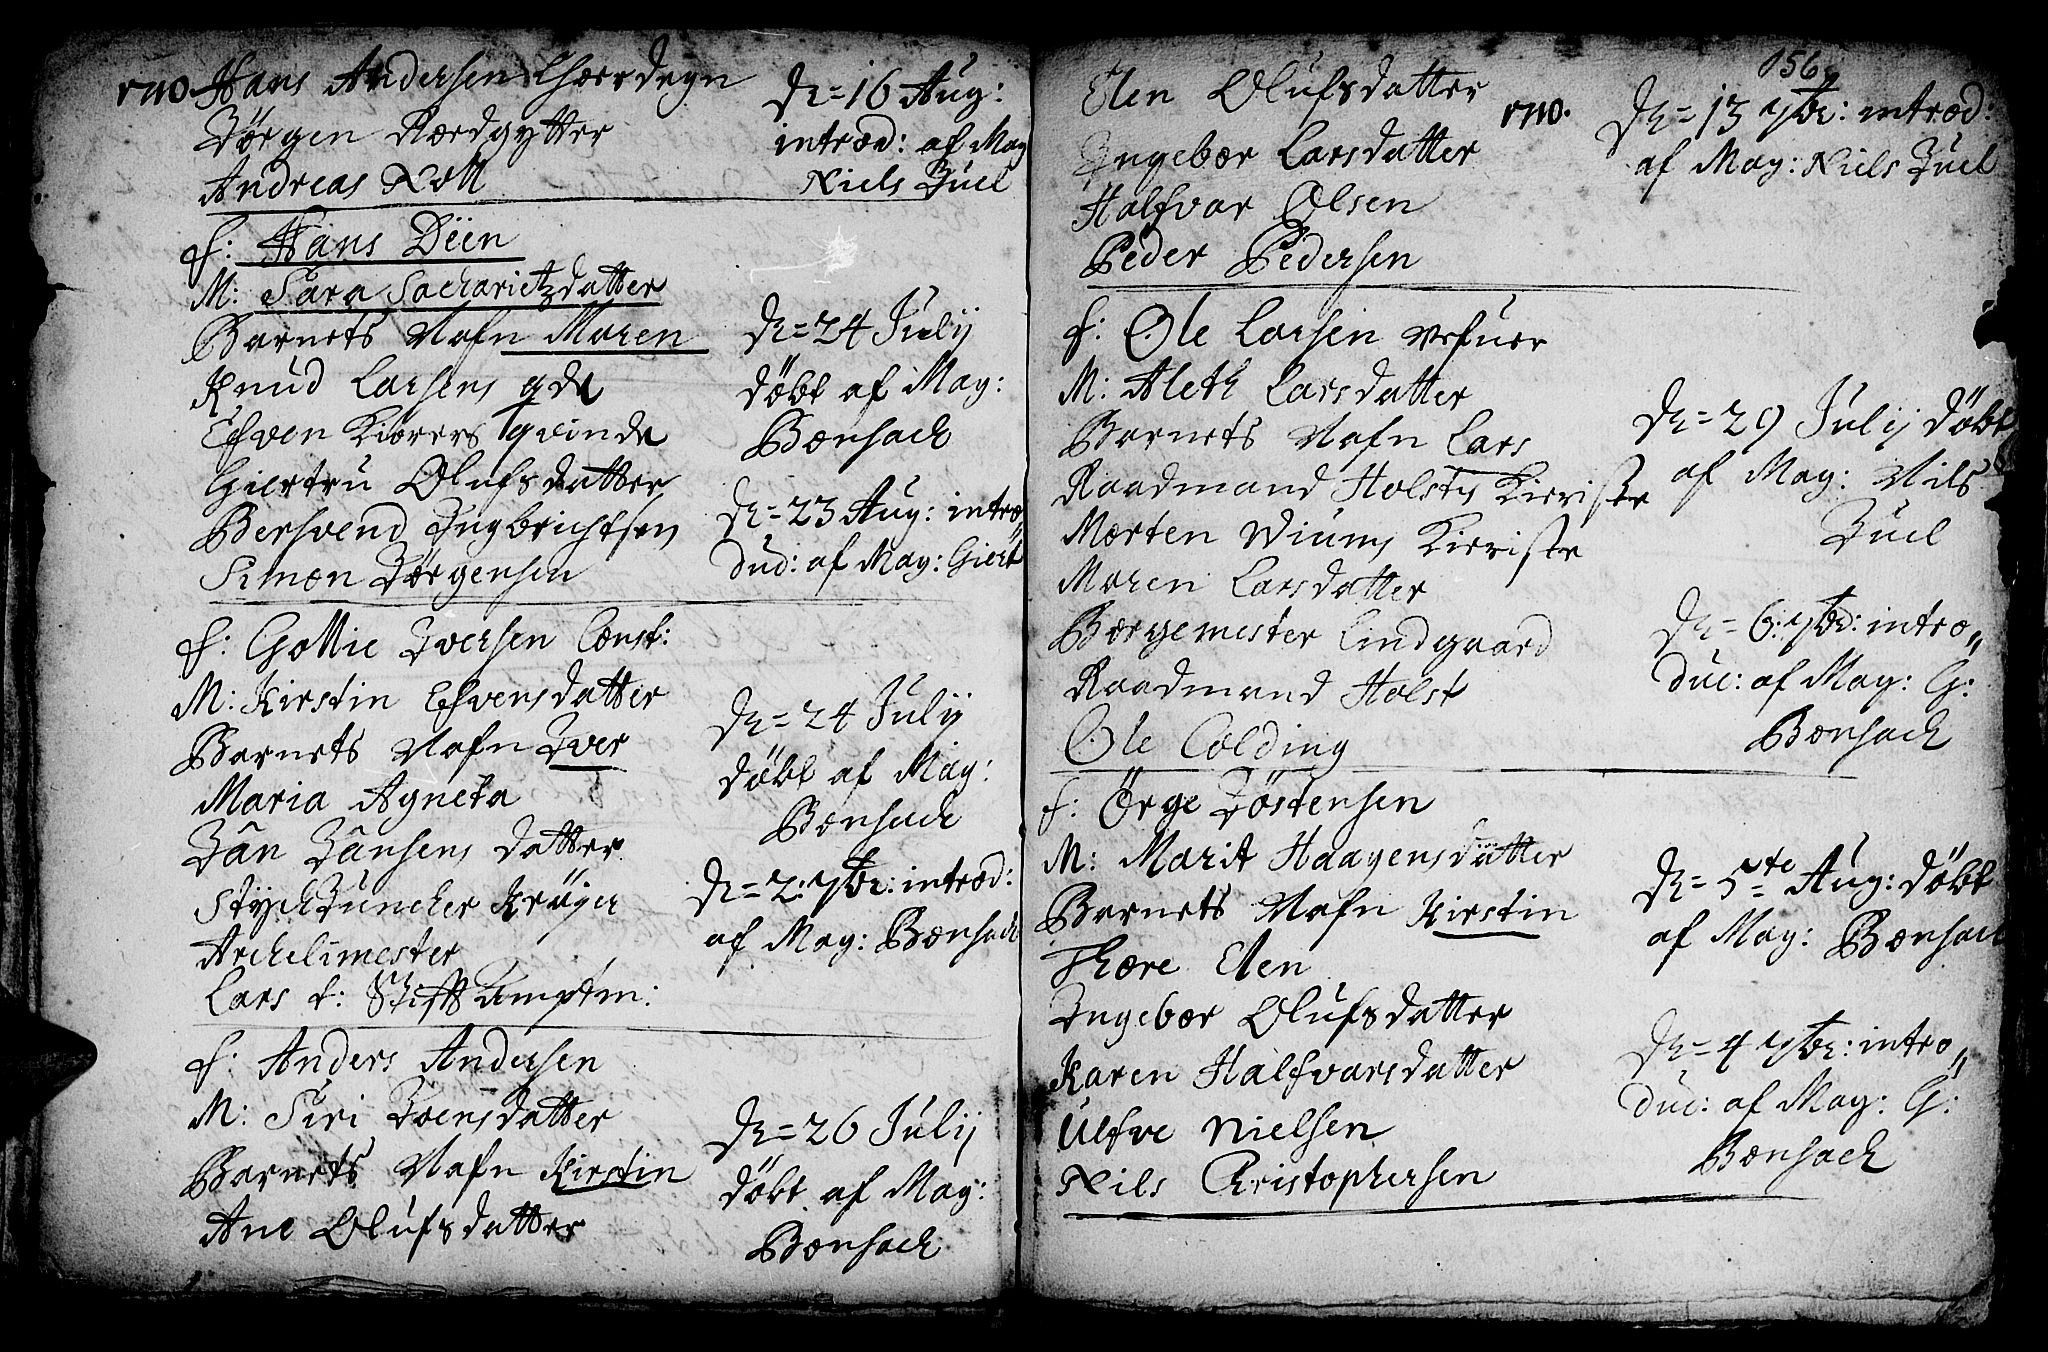 1710. Hans Andersen Chordegn
Jørgen Nordgytter
Andreas Noll
d. = 16 Aug:
introd: af Mag
Niels Juel
f: Hans Deen
M: Sara Sacharietzdatter
Barnets Nafn Maren
Knud Larsens qde
Efven Kiørers qvinde
Giertru Olufsdatter
Bersvend Ingbrichtsen
Simon Jørgensen
d. = 24 Julij
døbt af Mag:
Bonsach
d. = 23 Aug: intro„
dud: af Mag: Giert
f: Gottlie Iversen Const:
M: Kirstin Efvensdatter
Barnets Nafn Iver
Maria Agneta
Jan Jansens datter
Styckjuncker Krüger
Archelimester
Lars f: Stifft Amptm:
d. = 24 Julij
døbt af Mag:
Bonsach
d. = 2: 7br: introd:
af Mag: Bonsach
f: Anders Andersen
M: Siri Joensdatter
Barnets Nafn Kirstin
Ane Olufsdatter
d. = 26 Julij
døbt af Mag:
Bonsach
156
Elen Olufsdatter
1710.
Ingebor Larsdatter
Halfvar Olsen
Peder Pedersen
d. = 13 7br: introd:
af Mag: Niels Juel
f: Ole Larsen Vefuer
M: Aleth Larsdatter
Barnets Nafn Lars
Raadmand Holsts Kieriste
Morten Wiums Kieriste
Maren Larsdatter
Borgemester Lindgaard
Raadmand Holst
Ole Colding
d. = 29 Julij døbt
af Mag: Nils
Juel
d. = 6: 7br: intro„
duc: af Mag: G:
Bonsach
f: Örge Jöstensen
M: Marit Haagensdatter
Barnets Nafn Kirstin
Thore Elen
Ingebor Olufsdatter
Karen Halfvarsdatter
Ulfve Nielsen
Nils Christophersen
d. = 5te Aug: døbt
af Mag: Bonsach
d. = 4 7br: intro„
duc: af Mag: G:
Bonsach